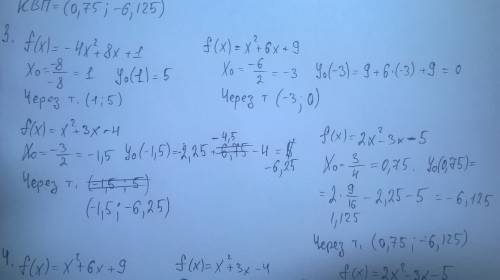 КВП = (0,75; -6,125)
3.
f(x) = -4x²+8x+1
x₀ = -8/-8 = 1 y₀(1) = 5
Через т. (1; 5)
f(x) = x²+6x+9
x₀ = -6/2 = -3 y₀(-3) = 9+6·(-3)+9 = 0
Через т (-3; 0)
f(x) = x²+3x-4
x₀ = -3/2 = -1,5 y₀(-1,5) = 2,25 + -4,5 - 4 =
-6,25
Через т.
(-1,5; -6,25)
f(x) = 2x²-3x-5
x₀ = 3/4 = 0,75. y₀(0,75) =
= 2·9/16 - 2,25-5 = -6,125
1,125
Через т. (0,75; -6,125)
4.
f(x) = x²+6x+9 f(x) = x²+3x-4 f(x) = 2x²-3x-5